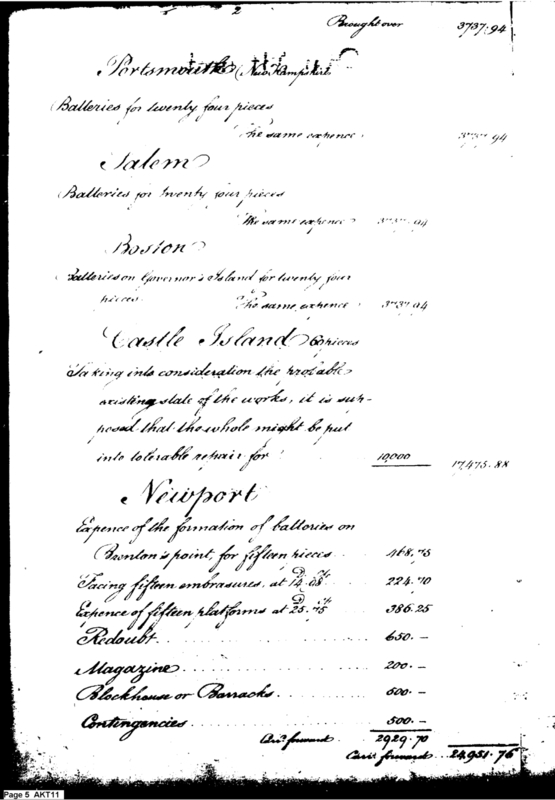 2
Brought over 3737.94
Portsmouth (New Hampshire
Batteries for twenty four pieces
The same expence 3737.94
Salem
Batteries for twenty four pieces
The same expence 3737.94
Boston
Batteries on Governor's Island for twenty four
pieces. The same expence 3737.94
Castle Island pieces
Taking into consideration the probable
existing state of the works, it is sup-
posed that the whole might be put
into tolerable repair for 10,000 17,475.88
Newport
Expence of the formation of batteries on
Brenton's point, for fifteen pieces 468.75
Facing fifteen embrasures, at 14.98 224.70
Expence of fifteen platforms at 25.75 386.25
Redoubt 650.—
Magazine 200.—
Blockhouse or Barracks 500.—
Contingencies 500.—
Carr.d forward 2929.70
Carr.d forward 24,951.76
Page 5 AKT11